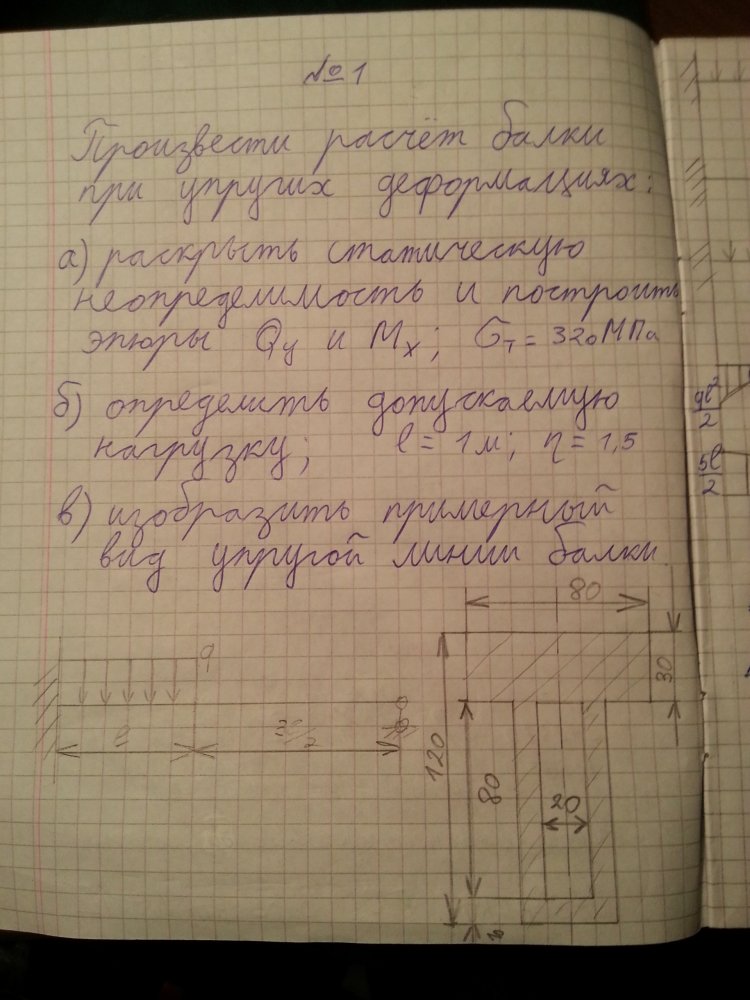 № 1
Произвести расчёт балки
при упругих деформациях:
а) раскрыть статическую
неопределимость и построить
эпюры Qy и Mx; σт = 320 МПа
б) определить допускаемую
нагрузку; l = 1м; η = 1,5
в) изобразить примерный
вид упругой линии балки
80
q
30
l
120
80
20
10
ql²/2
5l/2